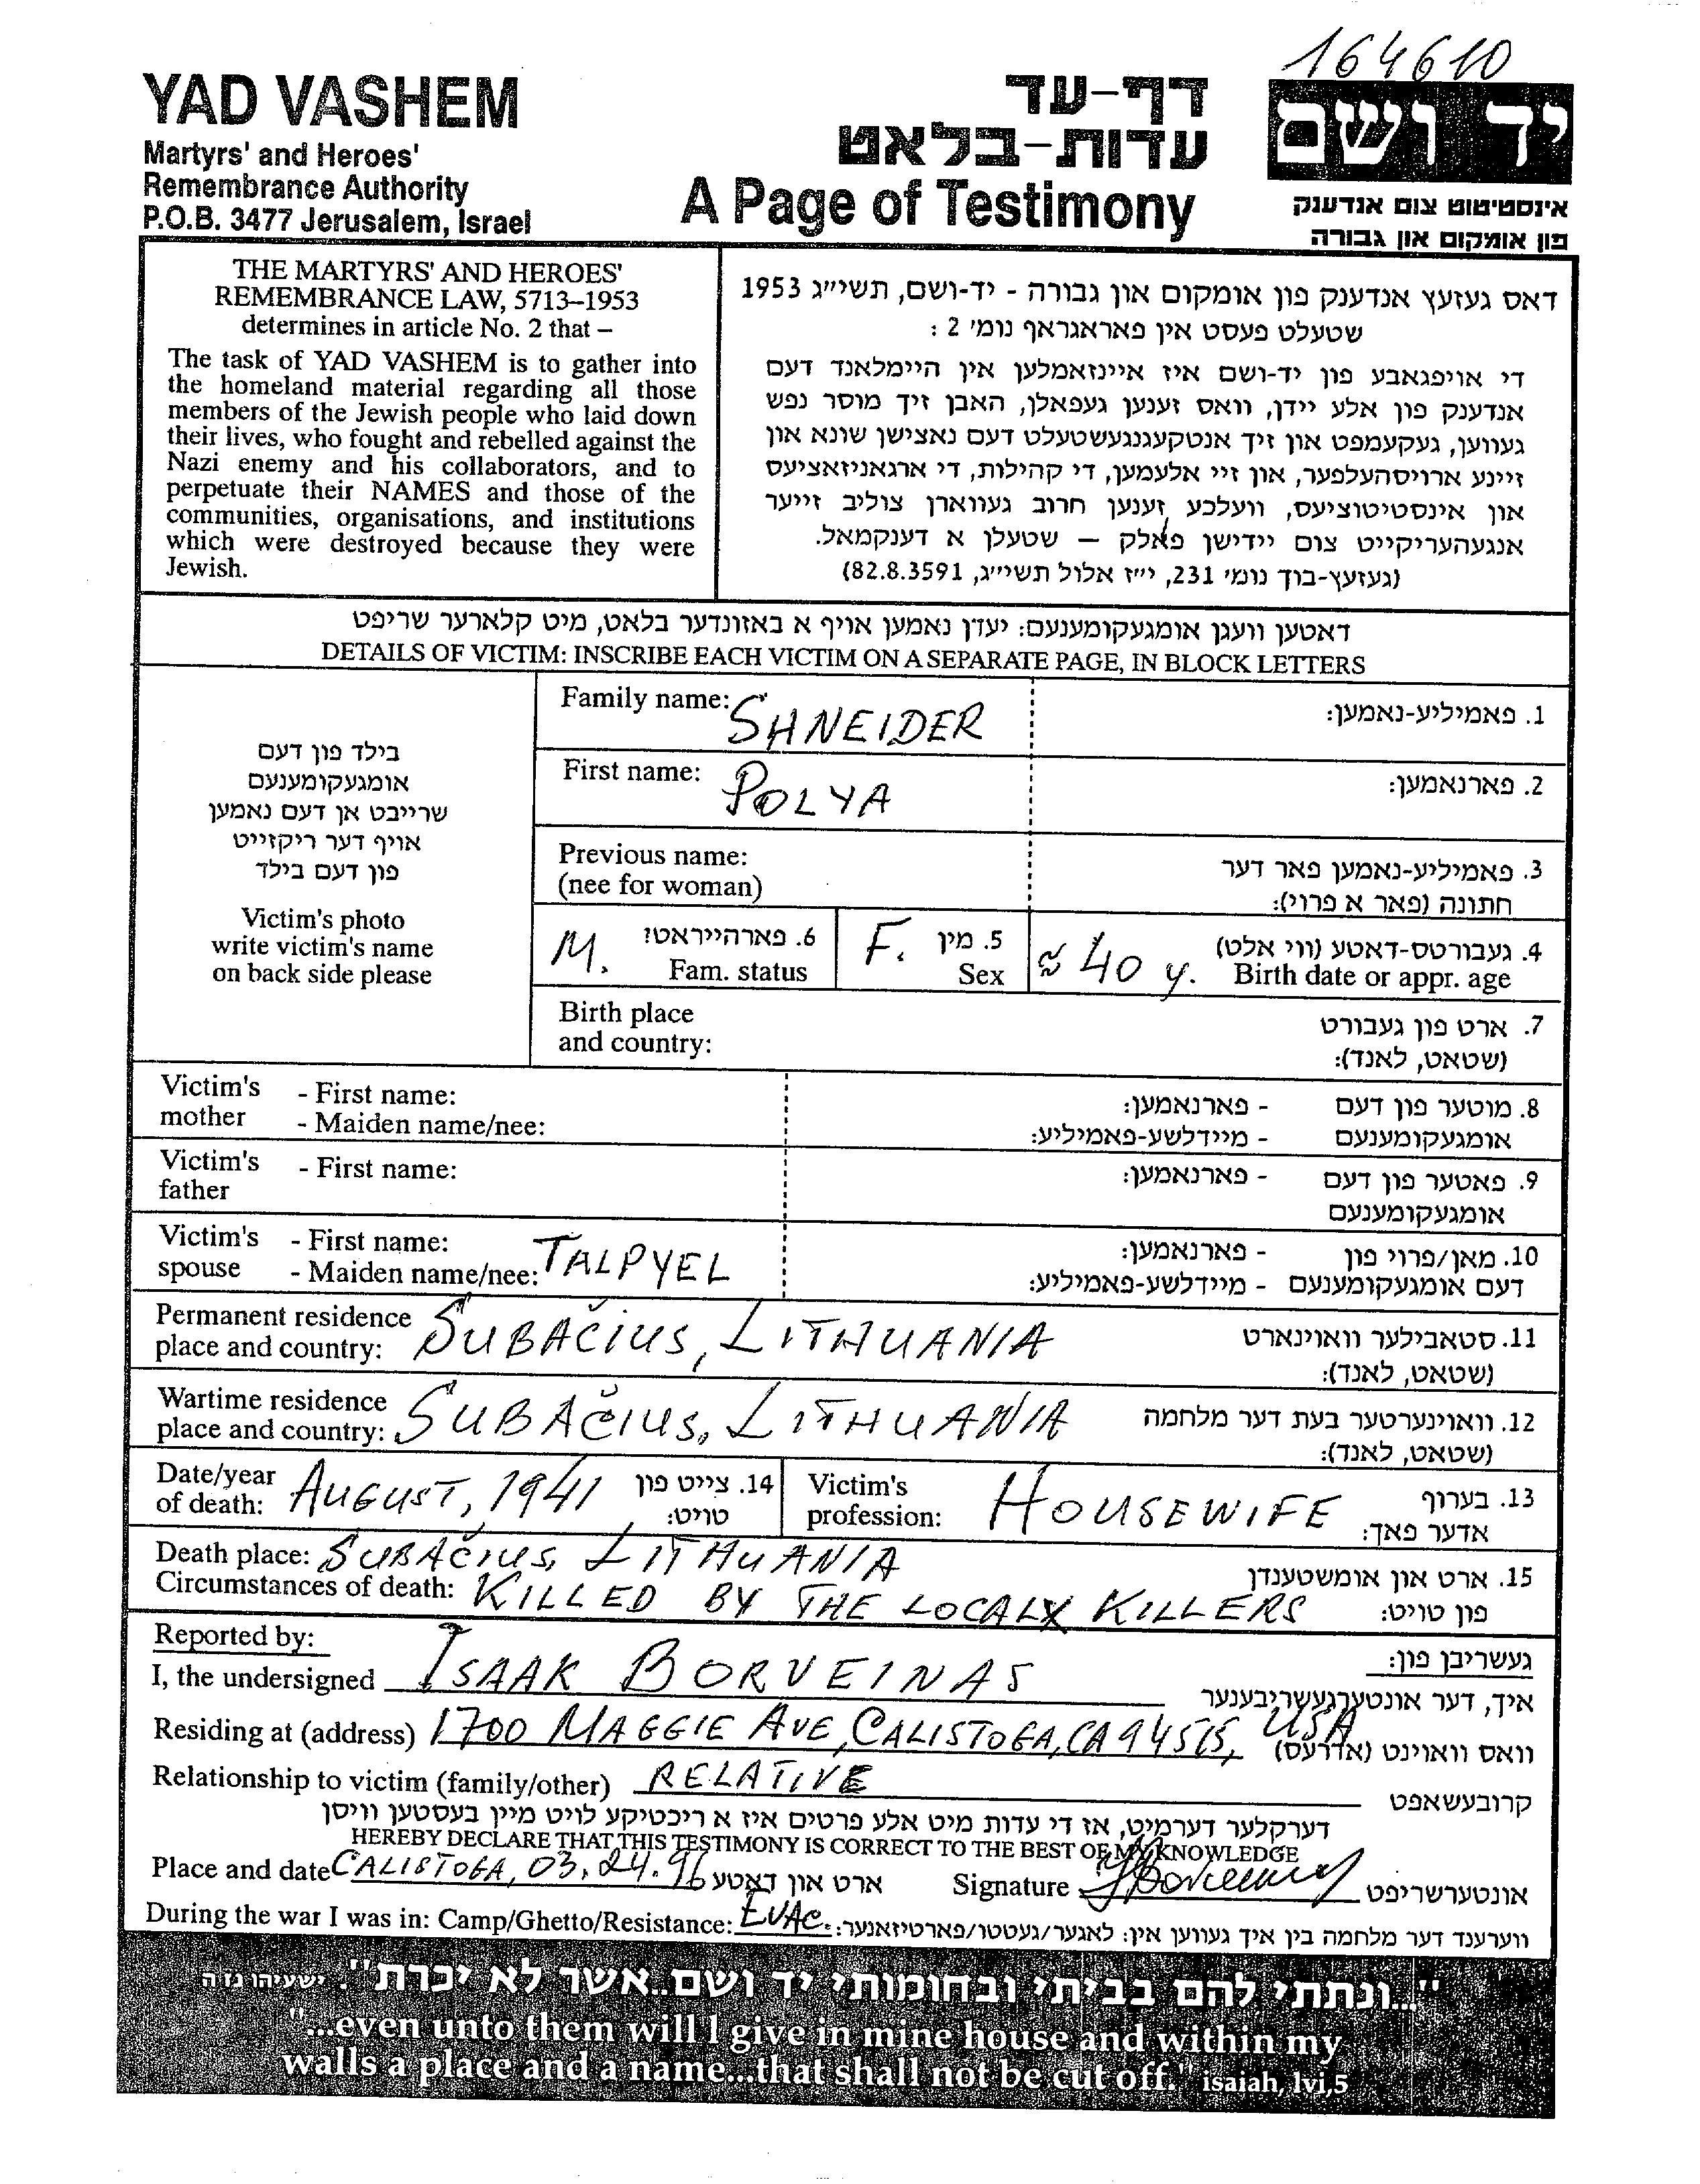 164610
YAD VASHEM
Martyrs' and Heroes'
Remembrance Authority
P.O.B. 3477 Jerusalem, Israel
דף-עד
עדות-בלאט
A Page of Testimony
יד ושם
אינסטיטוט צום אנדענק
פון אומקום און גבורה
THE MARTYRS' AND HEROES'
REMEMBRANCE LAW, 5713–1953
determines in article No. 2 that –
The task of YAD VASHEM is to gather into
the homeland material regarding all those
members of the Jewish people who laid down
their lives, who fought and rebelled against the
Nazi enemy and his collaborators, and to
perpetuate their NAMES and those of the
communities, organisations, and institutions
which were destroyed because they were
Jewish.
דאס געזעץ אנדענק פון אומקום און גבורה - יד-ושם, תשי״ג 1953
שטעלט פעסט אין פאראגראף נומ׳ 2 :
די אויפגאבע פון יד-ושם איז איינזאמלען אין היימלאנד דעם
אנדענק פון אלע יידן, וואס זענען געפאלן, האבן זיך מוסר נפש
געווען, געקעמפט און זיך אנטקעגנגעשטעלט דעם נאצישן שונא און
זיינע ארויסהעלפער, און זיי אלעמען, די קהילות, די ארגאניזאציעס
און אינסטיטוציעס, וועלכע זענען חרוב געווארן צוליב זייער
אנגעהעריקייט צום יידישן פאלק – שטעלן א דענקמאל.
(געזעץ-בוך נומ׳ 231, י״ז אלול תשי״ג, 82.8.3591)
דאטען וועגן אומגעקומענעם: יעדן נאמען אויף א באזונדער בלאט, מיט קלארער שריפט
DETAILS OF VICTIM: INSCRIBE EACH VICTIM ON A SEPARATE PAGE, IN BLOCK LETTERS
בילד פון דעם
אומגעקומענעם
שרייבט אן דעם נאמען
אויף דער ריקזייט
פון דעם בילד
Victim's photo
write victim's name
on back side please
Family name: SHNEIDER 1. פאמיליע-נאמען:
First name: POLYA 2. פארנאמען:
Previous name: 3. פאמיליע-נאמען פאר דער
(nee for woman) חתונה (פאר א פרוי):
M. 6. פארהייראט? F. 5. מין ≈ 40 y. 4. געבורטס-דאטע (ווי אלט)
Fam. status Sex Birth date or appr. age
Birth place 7. ארט פון געבורט
and country: (שטאט, לאנד):
Victim's - First name: - פארנאמען: 8. מוטער פון דעם
mother - Maiden name/nee: - מיידלשע-פאמיליע: אומגעקומענעם
Victim's - First name: - פארנאמען: 9. פאטער פון דעם
father אומגעקומענעם
Victim's - First name: - פארנאמען: 10. מאן/פרוי פון
spouse - Maiden name/nee: TALPYEL - מיידלשע-פאמיליע: דעם אומגעקומענעם
Permanent residence 11. סטאבילער וואוינארט
place and country: SUBAČIUS, LITHUANIA (שטאט, לאנד):
Wartime residence 12. וואוינערטער בעת דער מלחמה
place and country: SUBAČIUS, LITHUANIA (שטאט, לאנד):
Date/year 14. צייט פון Victim's 13. בערוף
of death: AUGUST, 1941 טויט: profession: HOUSEWIFE אדער פאך:
Death place: SUBAČIUS, LITHUANIA 15. ארט און אומשטענדן
Circumstances of death: KILLED BY THE LOCAL KILLERS פון טויט:
Reported by: געשריבן פון:
I, the undersigned ISAAK BORVEINAS איך, דער אונטערגעשריבענער
Residing at (address) 1700 MAGGIE AVE, CALISTOGA, CA 94515, USA וואס וואוינט (אדרעס)
Relationship to victim (family/other) RELATIVE קרובעשאפט
דערקלער דערמיט, אז די עדות מיט אלע פרטים איז א ריכטיקע לויט מיין בעסטען וויסן
HEREBY DECLARE THAT THIS TESTIMONY IS CORRECT TO THE BEST OF MY KNOWLEDGE
Place and date CALISTOGA, 03.24.96 ארט און דאטע Signature אונטערשריפט
During the war I was in: Camp/Ghetto/Resistance: EVAC. ווערענד דער מלחמה בין איך געווען אין: לאגער/געטטו/פארטיזאנער:
"...ונתתי להם בביתי ובחומותי יד ושם..אשר לא יכרת". ישעיהו נו ה
"...even unto them will I give in mine house and within my
walls a place and a name...that shall not be cut off." isaiah, lvi,5